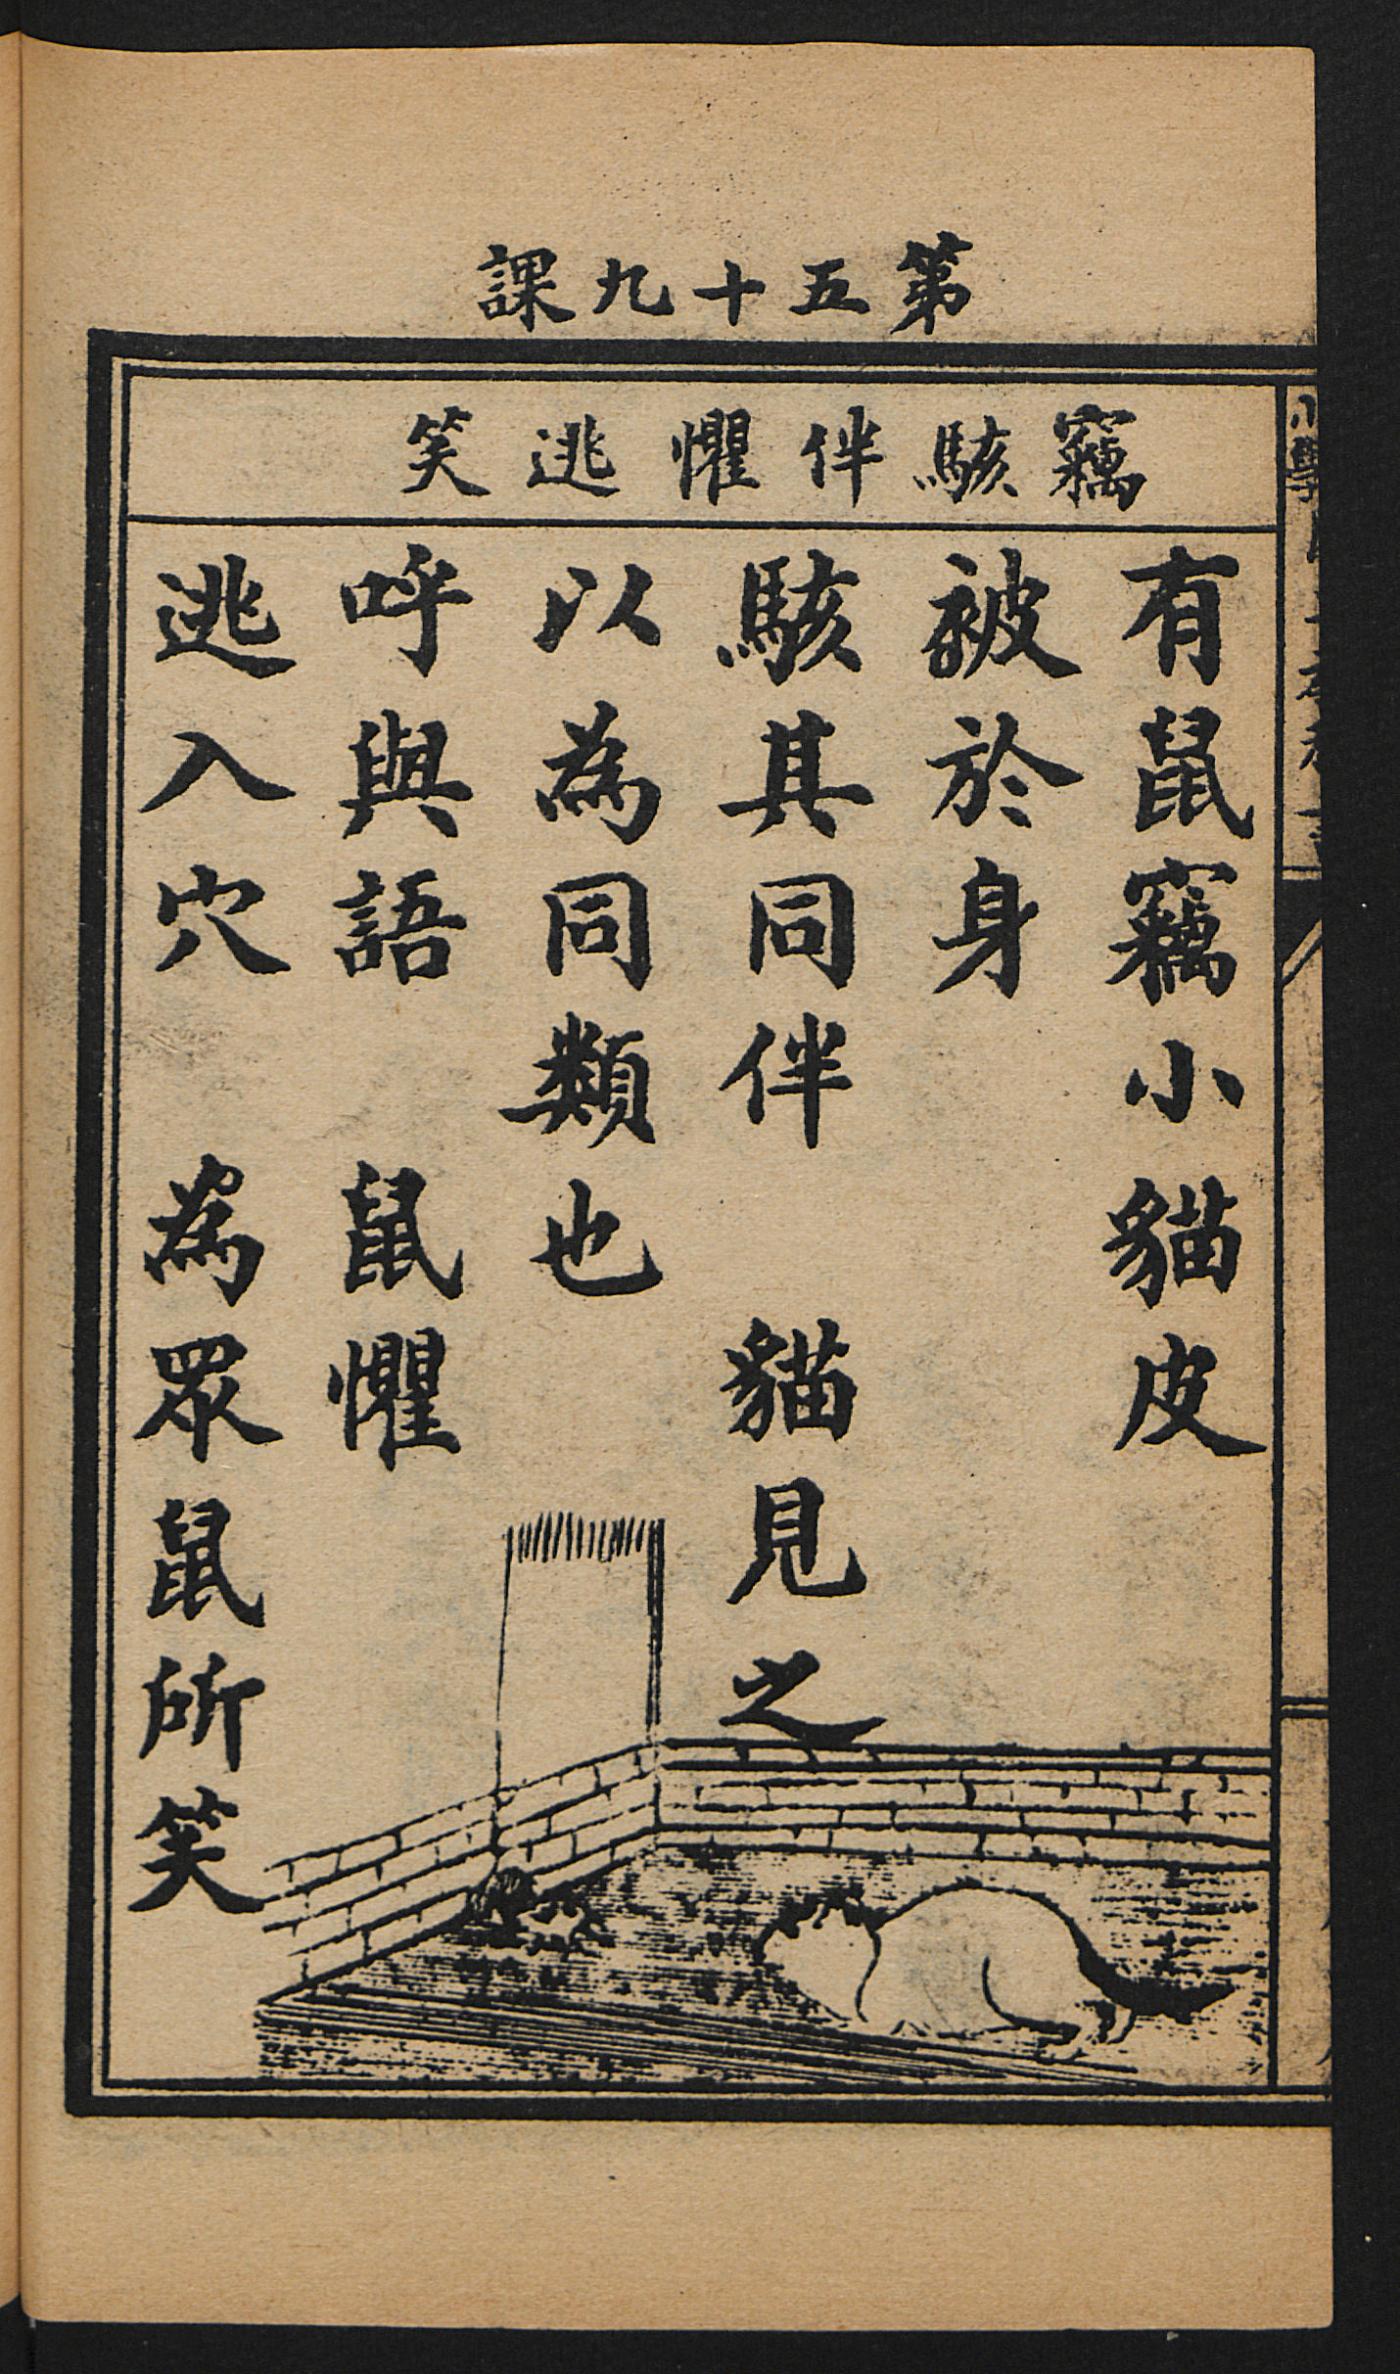 第五十九課
竊駭伴懼逃笑
有鼠竊小貓皮
被於身
駭其同伴　貓見之
以為同類也
呼與語　鼠懼
逃入穴　為眾鼠所笑